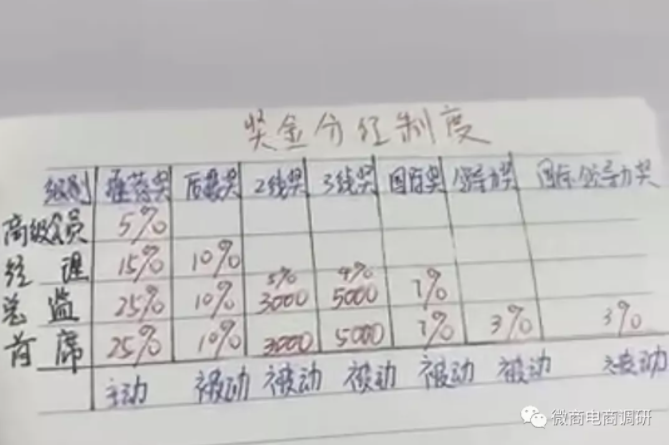 奖金分红制度
级别 推荐奖 2线奖 3线奖 国际奖 领导力奖 国际领导力奖
高级会员 5%
经理 15% 10%
5% 4%
总监 25% 10% 3000 5000 1%
首席 25% 10% 3000 5000 1% 3% 3%
主动 被动 被动 被动 被动 被动 被动
微商电商调研